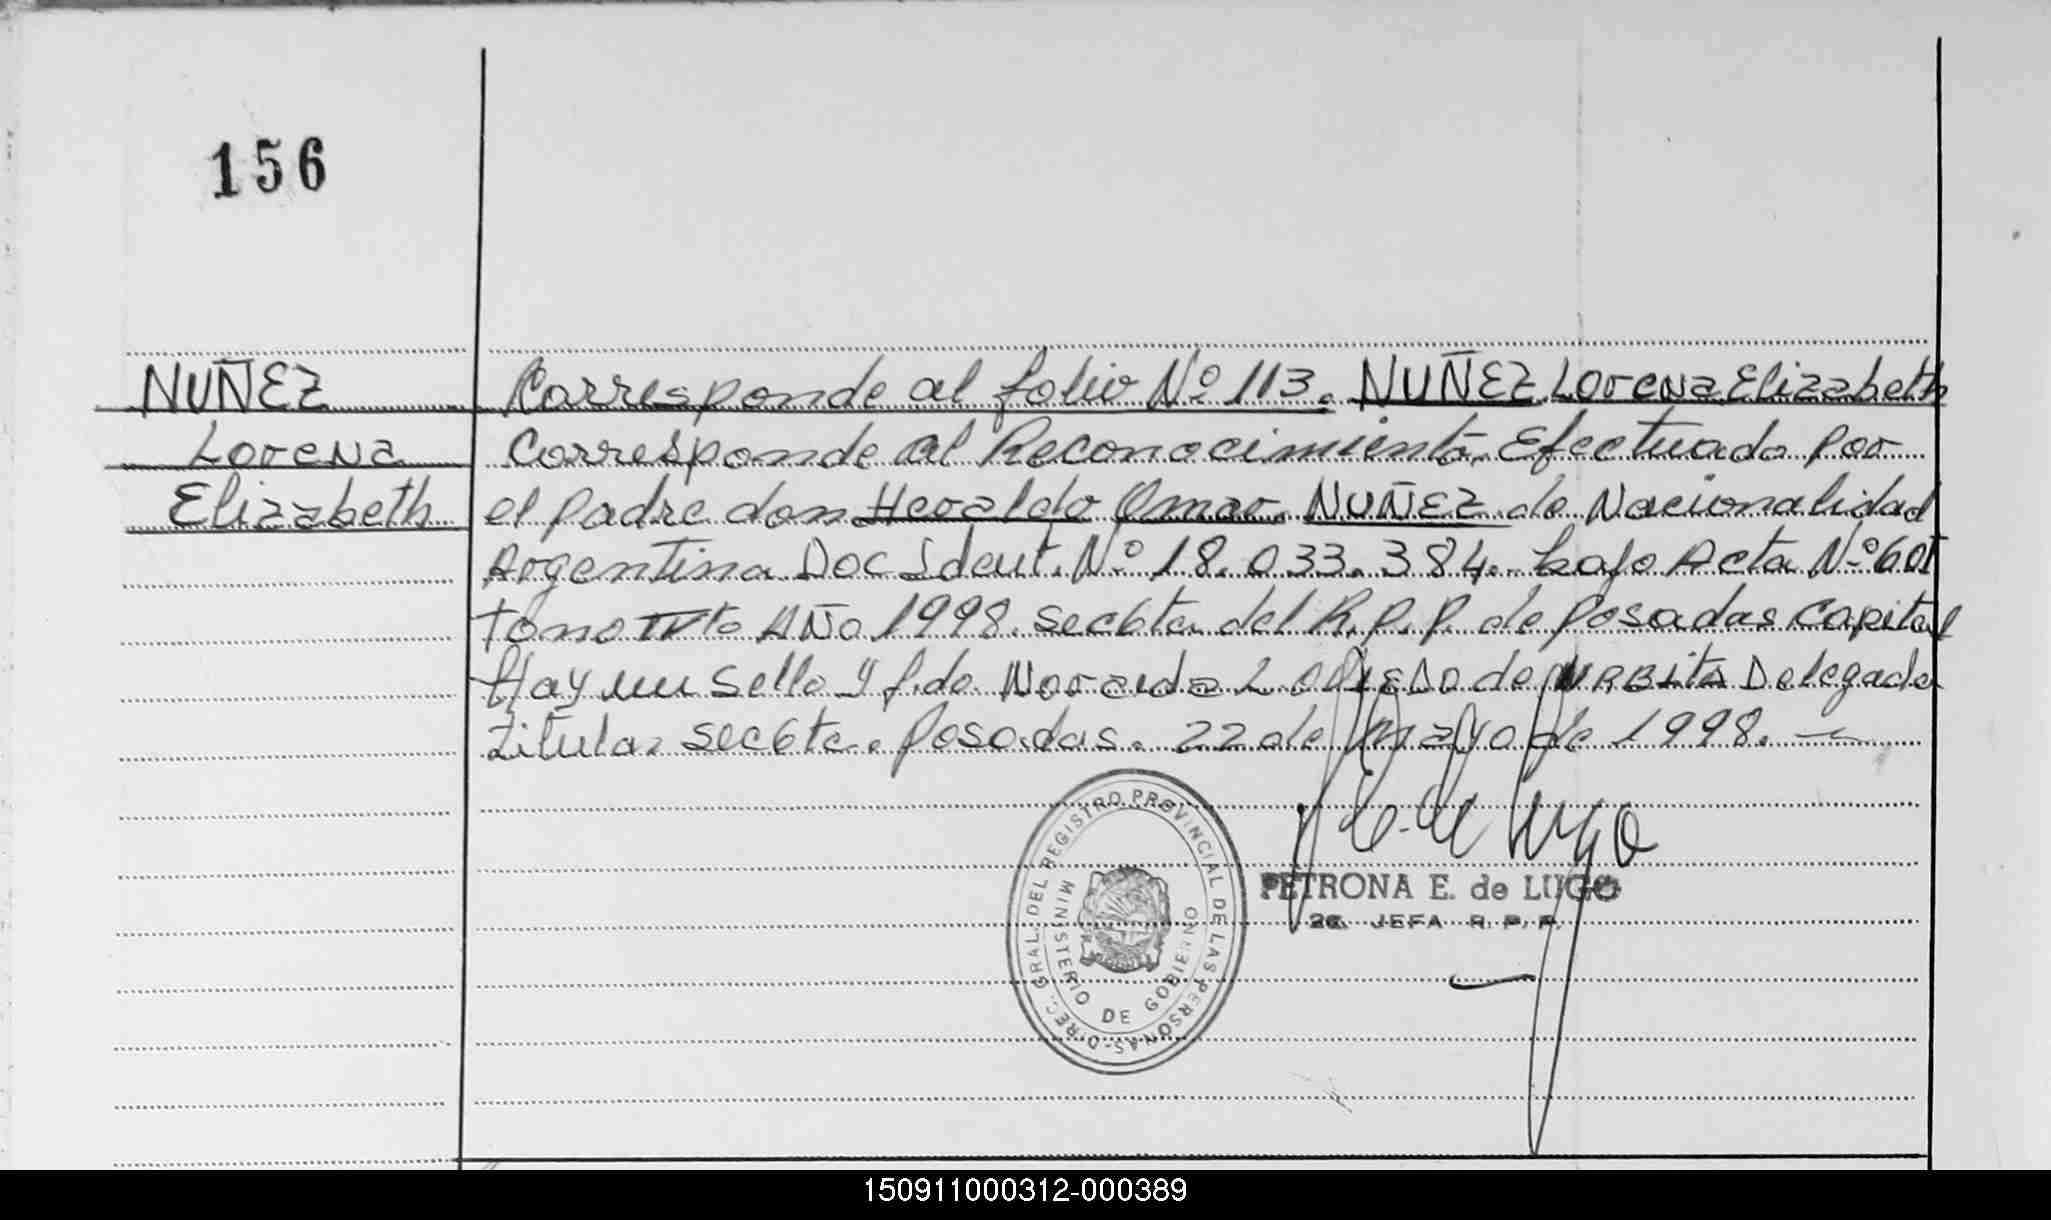 156
NUÑEZ
Lorena
Elizabeth
Corresponde al folio Nº 113. NUÑEZ Lorena Elizabeth
Corresponde al Reconocimiento Efectuado Por
el Padre don Heraldo Omar NUÑEZ de Nacionalidad
Argentina Doc Ident. Nº 18.033.384. bajo Acta Nº 601
tomo IVto Año 1998. sec6ta del R.P.P. de Posadas Capital
Hay un Sello y f.do. de Delegada
titular sec6ta. Posadas. 22 de Mayo de 1998.
P. E. de Lugo
PETRONA E. de LUGO
2a. JEFA R.P.P.
DIREC. GRAL. DEL REGISTRO PROVINCIAL DE LAS PERSONAS
MINISTERIO DE GOBIERNO
150911000312-000389